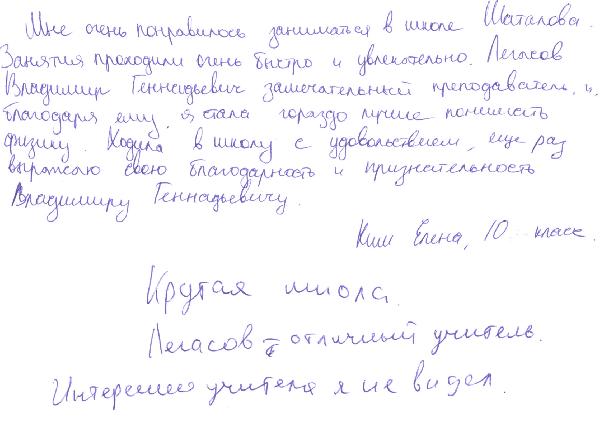 Мне очень понравилось заниматься в школе Шаталова.
Занятия проходили очень быстро и увлекательно. Легасов
Владимир Геннадьевич замечательный преподаватель, и,
благодаря ему, я стала гораздо лучше понимать
физику. Ходила в школу с удовольствием, еще раз
выражаю свою благодарность и признательность
Владимиру Геннадьевичу.
Ким Елена, 10 класс.
Крутая школа.
Легасов – отличный учитель.
Интереснее учителя я не видел.